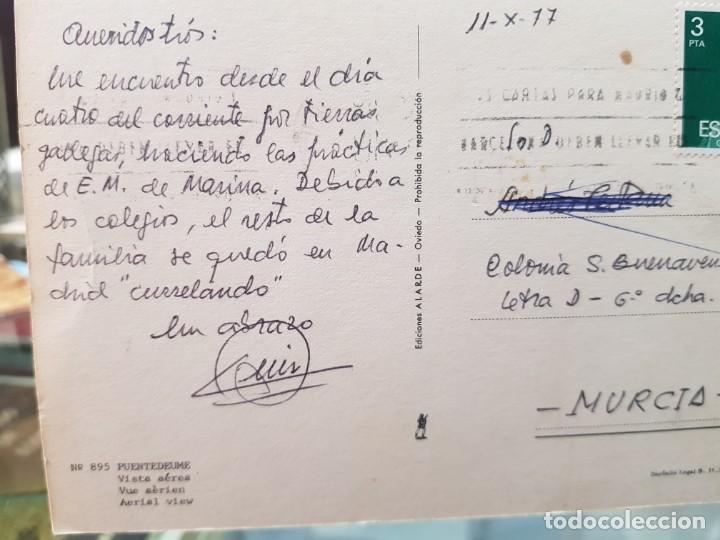 Queridos tíos:
Me encuentro desde el día
cuatro del corriente por tierras
gallegas, haciendo las prácticas
de E.M. de Marina. Debido a
los colegios, el resto de la
familia se quedó en Ma-
drid "currelando"
Un abrazo
Luis
Nº 895 PUENTEDEUME
Vista aérea
Vue aèrien
Aerial view
Ediciones ALARDE - Oviedo - Prohibida la reproducción
11-X-77
3
PTA
ES
CARTAS PARA MADRID
BARCELONA DEBEN LLEVAR EL
Colonia S. Buenaven
Letra D - 6º dcha.
- MURCIA -
Depósito Legal
todocoleccion